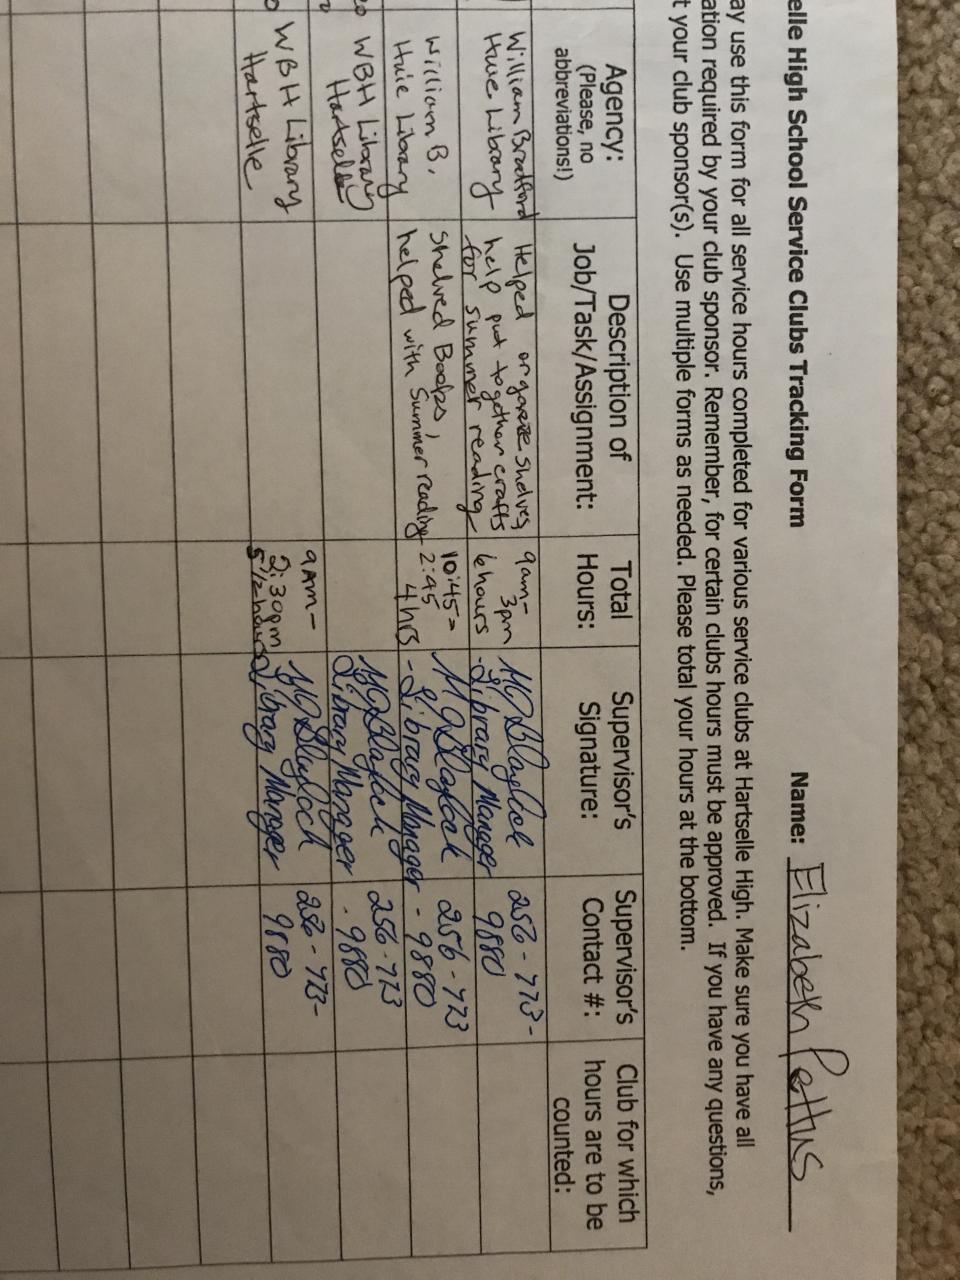 elle High School Service Clubs Tracking Form
Name: Elizabeth Pettus
ay use this form for all service hours completed for various service clubs at Hartselle High. Make sure you have all
ation required by your club sponsor. Remember, for certain clubs hours must be approved. If you have any questions,
t your club sponsor(s). Use multiple forms as needed. Please total your hours at the bottom.
Agency:
(Please, no
abbreviations!)
Description of
Job/Task/Assignment:
Total
Hours:
Supervisor's
Signature:
Supervisor's
Contact #:
Club for which
hours are to be
counted:
William Bradford
Huie Library
Helped organize shelves
help put together crafts
for summer reading
9am-
3pm
6 hours
MJ Blaylock
-Library Manager
256-773-
9880
William B.
Huie Library
Shelved Books,
helped with Summer reading
10:45-
2:45
4 hrs
MJ Blaylock
-Library Manager
256-773
-9880
WBH Library
Hartselle
MJ Blaylock
Library Manager
256-773
-9880
WBH Library
Hartselle
9 AM-
2:30pm
5 1/2 hours
MJ Blaylock
Library Manager
256-773-
9880